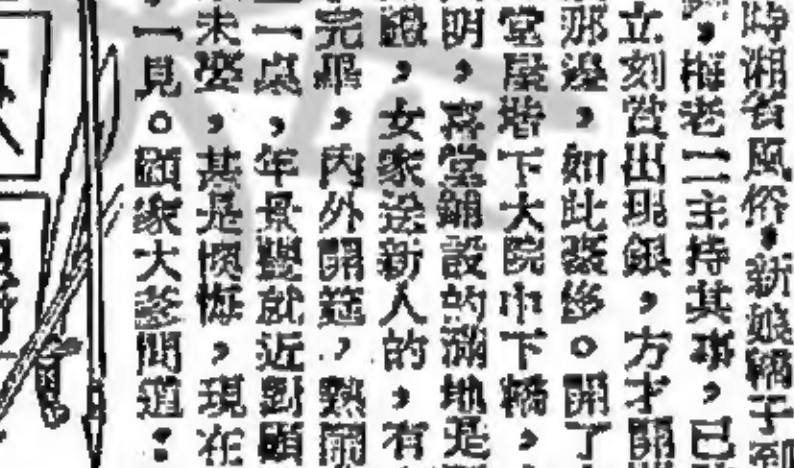 時湘省風俗，新娘轎子到
，梅老二主持其事，已
立刻賞出現銀，方才開
那邊，如此豪侈。開了
堂屋堦下大院中下轎，
明，喜堂鋪設的滿地是
證，女家送新人的，有
完畢，內外開筵，熱鬧
一桌，年景豐就近對顧
未娶，甚是懊悔，現在
，一見。顧家大爹問道：